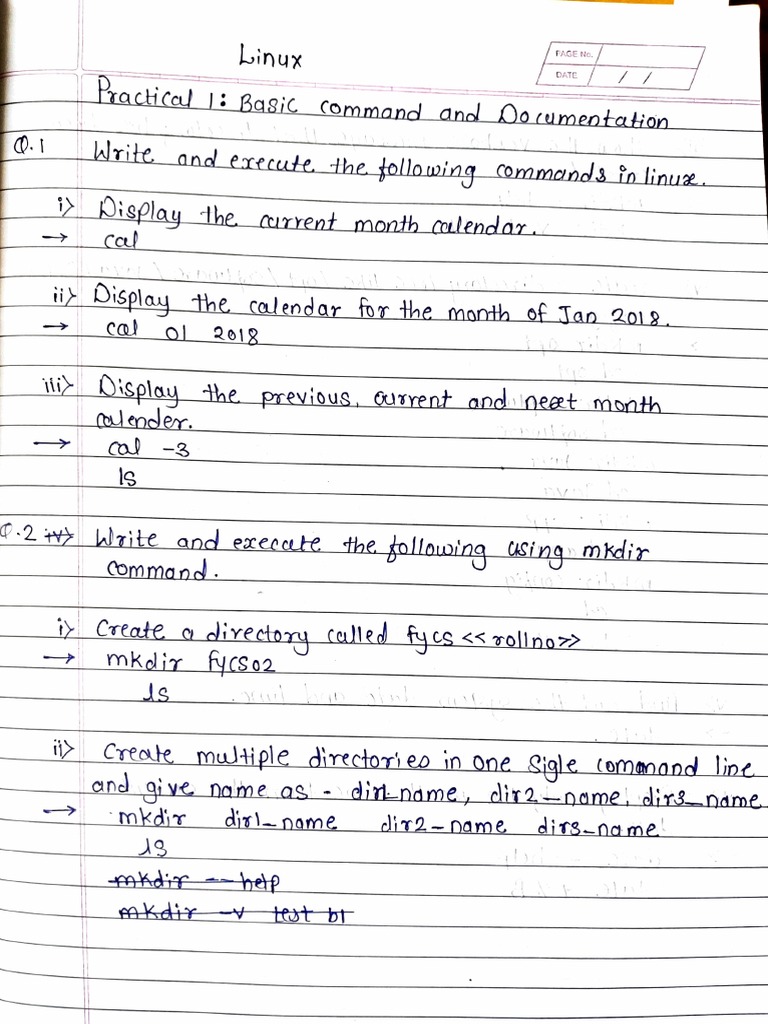 Linux
PAGE No.
DATE / /
Practical 1: Basic command and Documentation
Q.1 Write and execute the following commands in linux.
i> Display the current month calendar.
→ cal
ii> Display the calendar for the month of Jan 2018.
→ cal 01 2018
iii> Display the previous, current and next month
calender.
→ cal -3
ls
Q.2 iv> Write and execute the following using mkdir
command.
i> Create a directory called fycs <<rollno>>
→ mkdir fycs02
ls
ii> Create multiple directories in one Sigle command line
and give name as - dir1_name, dir2_name, dir3_name
→ mkdir dir1_name dir2_name dir3_name
ls
mkdir --help
mkdir -v test